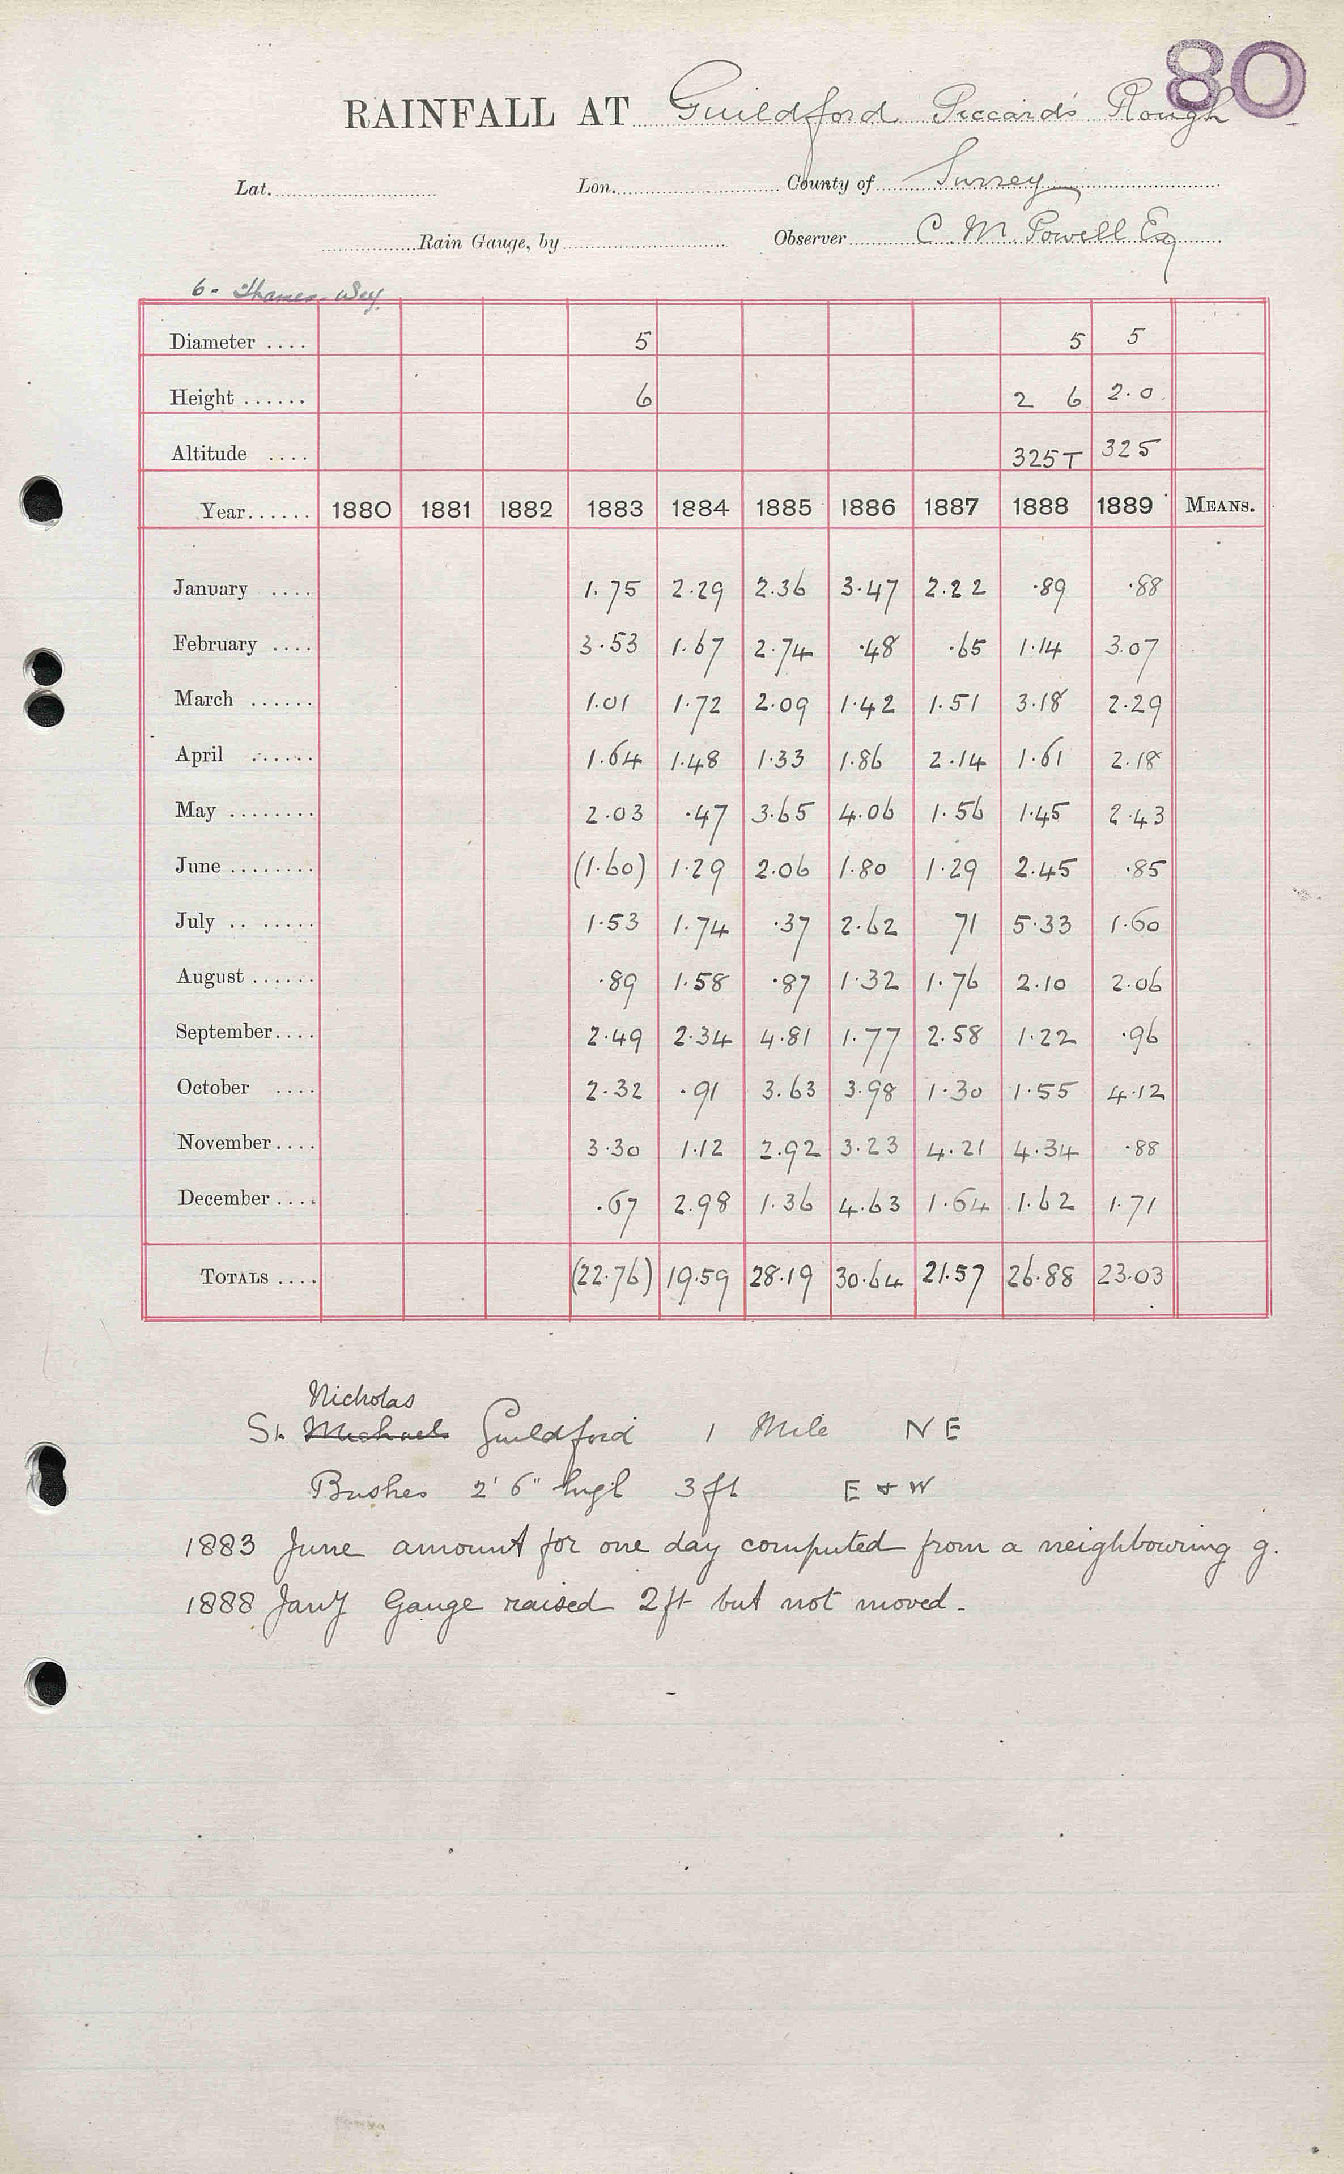 80
RAINFALL AT Guildford Piccard's Rough
Lat. Lon. County of Surrey
Rain Gauge, by Observer C. M. Powell Esq
6 - Thames - Wey
Diameter .... 5 5 5
Height ...... 6 2 6 2.0
Altitude .... 325T 325
Year...... 1880 1881 1882 1883 1884 1885 1886 1887 1888 1889 MEANS.
January .... 1.75 2.29 2.36 3.47 2.22 .89 .88
February .... 3.53 1.67 2.74 .48 .65 1.14 3.07
March ...... 1.01 1.72 2.09 1.42 1.51 3.18 2.29
April ...... 1.64 1.48 1.33 1.86 2.14 1.61 2.18
May ........ 2.03 .47 3.65 4.06 1.56 1.45 2.43
June ........ (1.60) 1.29 2.06 1.80 1.29 2.45 .85
July .. ..... 1.53 1.74 .37 2.62 71 5.33 1.60
August ...... .89 1.58 .87 1.32 1.76 2.10 2.06
September.... 2.49 2.34 4.81 1.77 2.58 1.22 .96
October .... 2.32 .91 3.63 3.98 1.30 1.55 4.12
November.... 3.30 1.12 2.92 3.23 4.21 4.34 .88
December .... .67 2.98 1.36 4.63 1.64 1.62 1.71
TOTALS .... (22.76) 19.59 28.19 30.64 21.57 26.88 23.03
Nicholas
St. Michaels Guildford 1 Mile N E
Bushes 2' 6" high 3 ft E & W
1883 June amount for one day computed from a neighbouring g.
1888 Jany Gauge raised 2 ft but not moved.